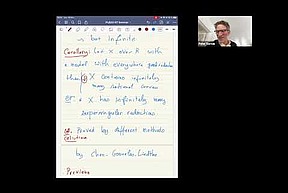 but infinite
Corollary: Let X over R with
a model with everywhere good reduction
then X contains infinitely
many rational curves
or X has infinitely many
supersingular reductions
Proved by different methods
by Chen-Gounelas-Liedtke
Previous